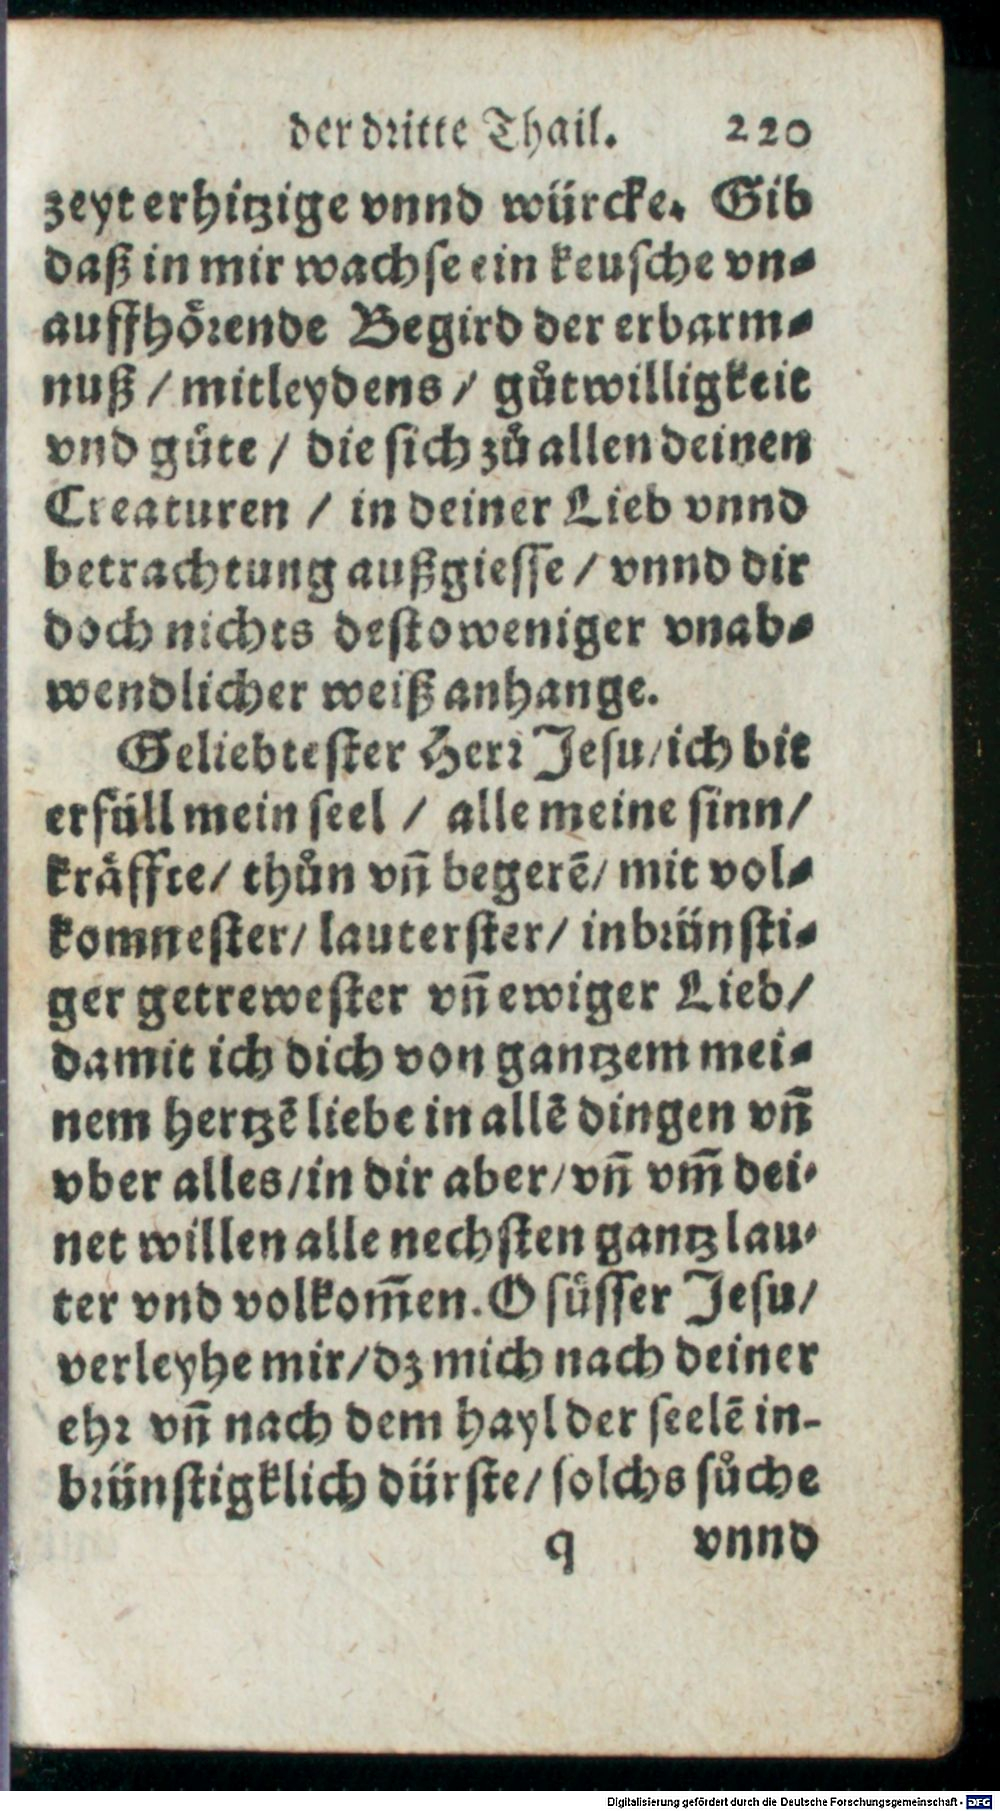 der dritte Thail. 220
zeyt erhitzige vnnd würcke. Gib
daß in mir wachse ein keusche vn-
auffhoͤrende Begird der erbarm-
nuß / mitleydens / guͦtwilligkeit
vnd guͤte / die sich zuͦ allen deinen
Creaturen / in deiner Lieb vnnd
betrachtung außgiesse / vnnd dir
doch nichts destoweniger vnab-
wendlicher weiß anhange.
Geliebtester Herr Jesu / ich bit
erfüll mein seel / alle meine sinn /
kraͤffte / thuͦn vñ begerẽ / mit vol-
komnester / lauterster / inbrünsti-
ger getrewester vñ ewiger Lieb /
damit ich dich von gantzem mei-
nem hertzẽ liebe in allẽ dingen vñ
vber alles / in dir aber / vñ vm̃ dei-
net willen alle nechsten gantz lau-
ter vnd volkom̃en. O suͤsser Jesu /
verleyhe mir / dz mich nach deiner
ehr vñ nach dem hayl der seelẽ in-
brünstigklich dürste / solchs suͦche
q vnnd
Digitalisierung gefördert durch die Deutsche Forschungsgemeinschaft - DFG